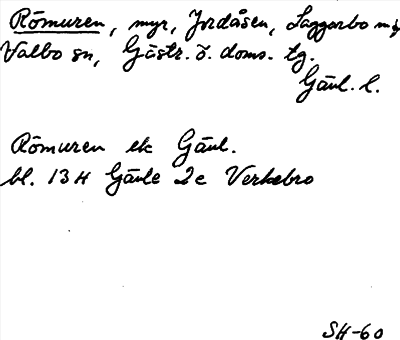 Römuren, myr, Jordåsen, Laggarbo m;
Valbo sn, Gästr. ö. doms. tg.
Gävl. l.
Römuren ek Gävl.
bl. 13H Gävle 2c Verkebro
SH-60